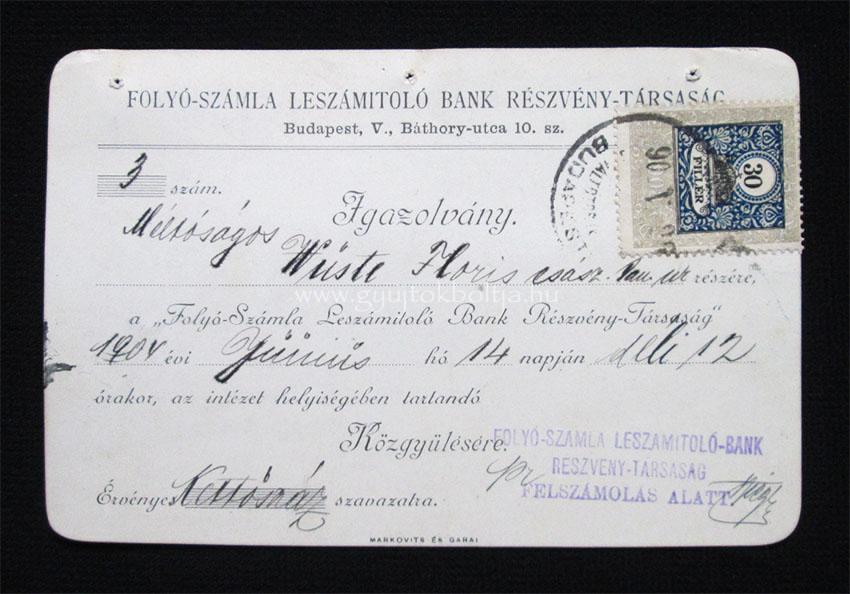 FOLYÓ-SZÁMLA LESZÁMITOLÓ BANK RÉSZVÉNY-TÁRSASÁG
Budapest, V., Báthory-utca 10. sz.
30
FILLÉR
BUDAPEST
3 szám.
Igazolvány.
Méltóságos
Wüste Floris csász. úr részére,
www.gyujtokboltja.hu
a „Folyó-Számla Leszámitoló Bank Részvény-Társaság"
1904 évi Június hó 14 napján déli 12
órakor, az intézet helyiségében tartandó
Közgyülésére.
Érvényes Kettőszáz szavazatra.
pr
FOLYÓ-SZÁMLA LESZÁMITOLÓ-BANK
RÉSZVÉNY-TÁRSASÁG
FELSZÁMOLÁS ALATT
MARKOVITS ÉS GARAI